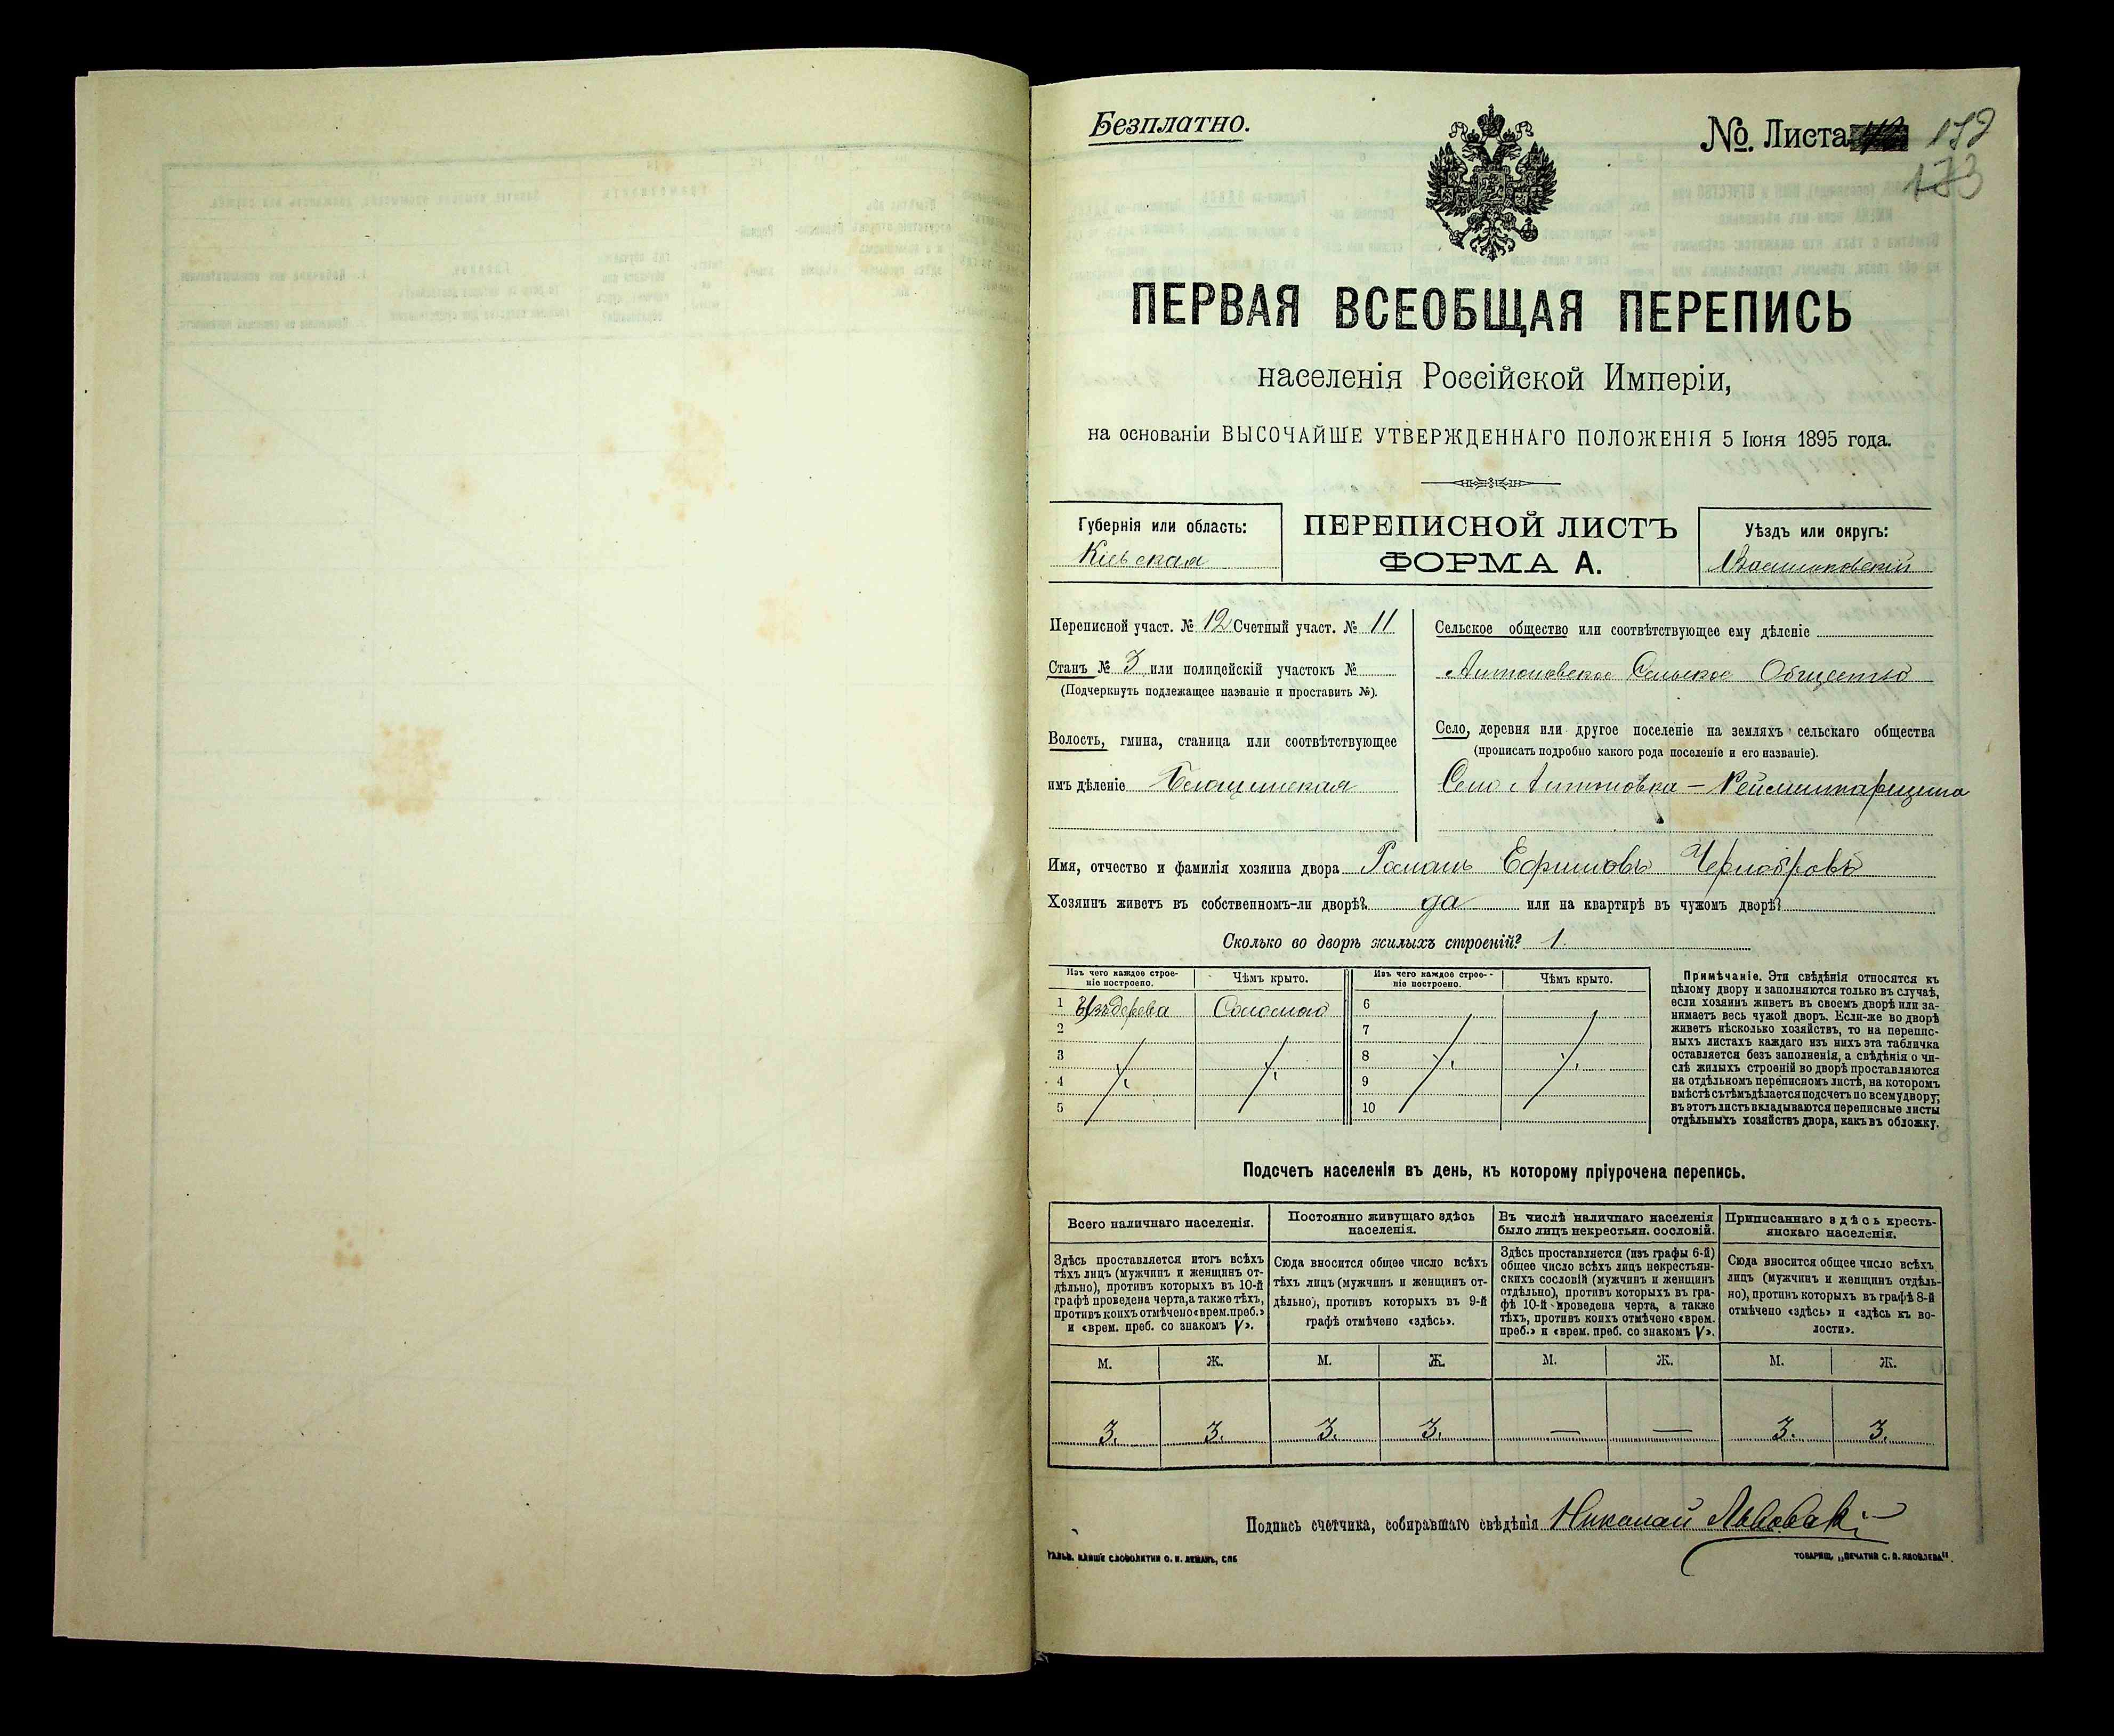 Безплатно.
№. Листа
ПЕРВАЯ ВСЕОБЩАЯ ПЕРЕПИСЬ
населенія Россійской Имперіи,
на основаніи ВЫСОЧАЙШЕ УТВЕРЖДЕННАГО ПОЛОЖЕНІЯ 5 Іюня 1895 года.
Губернія или область:
Кіевская
ПЕРЕПИСНОЙ ЛИСТЪ
ФОРМА А.
Уѣздъ или округъ:
Васильковскій
Переписной участ. № 12 Счетный участ. № 11
Станъ № 3 или полицейскій участокъ №
(Подчеркнуть подлежащее названіе и проставить №).
Волость, гмина, станица или соотвѣтствующее
имъ дѣленіе
Сельское общество или соотвѣтствующее ему дѣленіе
Антоновское Сельское Общество
Село, деревня или другое поселеніе на земляхъ сельскаго общества
(прописать подробно какого рода поселеніе и его названіе).
Село Антоновка –
Имя, отчество и фамилія хозяина двора Романъ Ефимовъ Чернобровъ
Хозяинъ живетъ въ собственномъ-ли дворѣ? да или на квартирѣ въ чужомъ дворѣ?
Сколько во дворѣ жилыхъ строеній? 1.
Изъ чего каждое строе-
ніе построено.
Чѣмъ крыто.
Изъ чего каждое строе-
ніе построено.
Чѣмъ крыто.
1 Изъ дерева Соломою 6
2 7
3 8
4 9
5 10
Примѣчаніе. Эти свѣдѣнія относятся къ
цѣлому двору и заполняются только въ случаѣ,
если хозяинъ живетъ въ своемъ дворѣ или за-
нимаетъ весь чужой дворъ. Если-же во дворѣ
живетъ нѣсколько хозяйствъ, то на перепис-
ныхъ листахъ каждаго изъ нихъ эта табличка
оставляется безъ заполненія, а свѣдѣнія о чи-
слѣ жилыхъ строеній во дворѣ проставляются
на отдѣльномъ переписномъ листѣ, на которомъ
вмѣстѣ съ тѣмъ дѣлается подсчетъ по всему двору;
въ этотъ листъ вкладываются переписные листы
отдѣльныхъ хозяйствъ двора, какъ въ обложку.
Подсчетъ населенія въ день, къ которому пріурочена перепись.
Всего наличнаго населенія.
Здѣсь проставляется итогъ всѣхъ
тѣхъ лицъ (мужчинъ и женщинъ от-
дѣльно), противъ которыхъ въ 10-й
графѣ проведена черта, а также тѣхъ,
противъ коихъ отмѣчено «врем. преб.»
и «врем. преб. со знакомъ V».
Постоянно живущаго здѣсь
населенія.
Сюда вносится общее число всѣхъ
тѣхъ лицъ (мужчинъ и женщинъ от-
дѣльно), противъ которыхъ въ 9-й
графѣ отмѣчено «здѣсь».
Въ числѣ наличнаго населенія
было лицъ некрестьян. сословій.
Здѣсь проставляется (изъ графы 6-й)
общее число всѣхъ лицъ некрестьян-
скихъ сословій (мужчинъ и женщинъ
отдѣльно), противъ которыхъ въ гра-
фѣ 10-й проведена черта, а также
тѣхъ, противъ коихъ отмѣчено «врем.
преб.» и «врем. преб. со знакомъ V».
Приписаннаго здѣсь кресть-
янскаго населенія.
Сюда вносится общее число всѣхъ
лицъ (мужчинъ и женщинъ отдѣль-
но), противъ которыхъ въ графѣ 8-й
отмѣчено «здѣсь» и «здѣсь къ во-
лости».
М. Ж. М. Ж. М. Ж. М. Ж.
3. 3. 3. 3. — — 3. 3.
Подпись счетчика, собиравшаго свѣдѣнія Николай
ТОВАРИЩ. „ПЕЧАТНЯ С. П. ЯКОВЛЕВА".